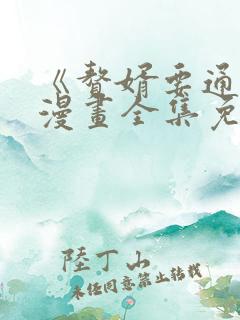 《贅婿要通
漫畫全集免
陸丁山
未经同意禁止转载